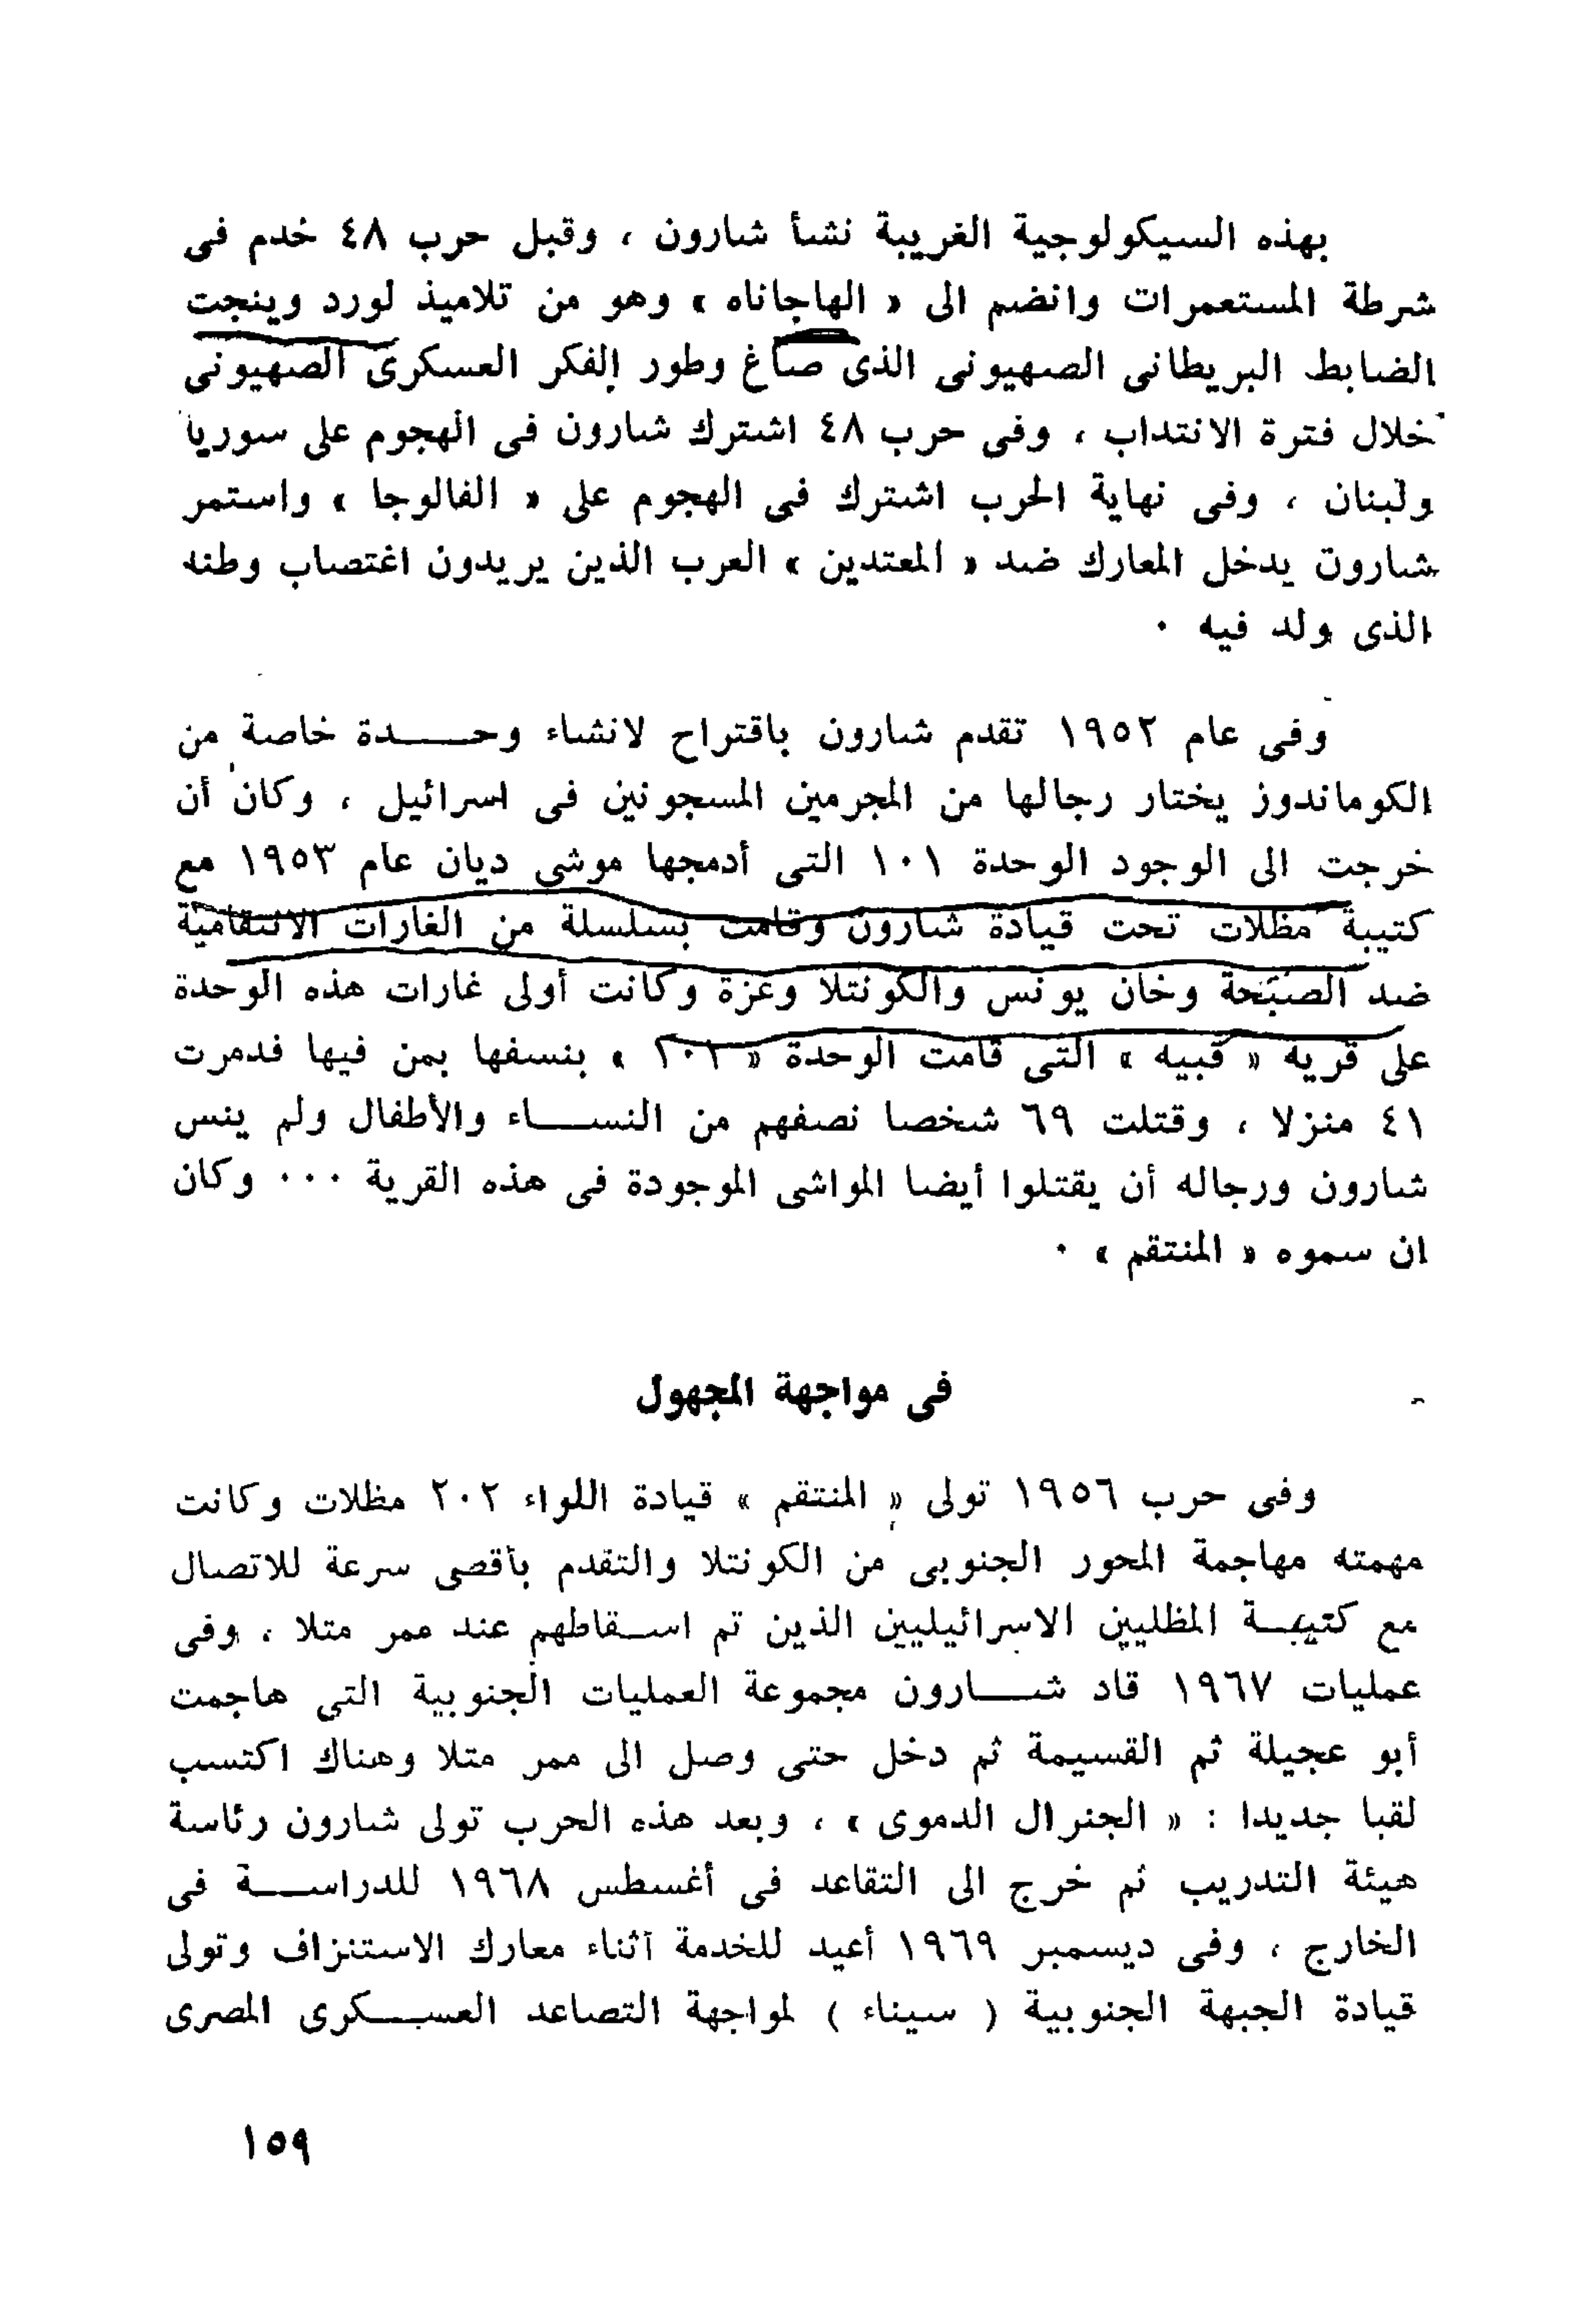 بهذه السيكولوجية الغريبة نشأ شارون ، وقبل حرب ٤٨ خدم فى
شرطة المستعمرات وانضم الى « الهاجاناه » وهو من تلاميذ لورد وينجت
الضابط البريطانى الصهيونى الذى صاغ وطور الفكر العسكرى الصهيونى
خلال فترة الانتداب ، وفى حرب ٤٨ اشترك شارون فى الهجوم على سوريا
ولبنان ، وفى نهاية الحرب اشترك فى الهجوم على « الفالوجا » واستمر
شارون يدخل المعارك ضد « المعتدين » العرب الذين يريدون اغتصاب وطنه
الذى ولد فيه ٠
وفى عام ١٩٥٢ تقدم شارون باقتراح لانشاء وحـــدة خاصة من
الكوماندوز يختار رجالها من المجرمين المسجونين فى اسرائيل ، وكان أن
خرجت الى الوجود الوحدة ١٠١ التى أدمجها موشى ديان عام ١٩٥٣ مع
كتيبة مظلات تحت قيادة شارون وقامت بسلسلة من الغارات الانتقامية
ضد الصبحة وخان يونس والكونتلا وغزة وكانت أولى غارات هذه الوحدة
على قريه « قبيه » التى قامت الوحدة « » بنسفها بمن فيها فدمرت
٤١ منزلا ، وقتلت ٦٩ شخصا نصفهم من النســـاء والأطفال ولم ينس
شارون ورجاله أن يقتلوا أيضا المواشى الموجودة فى هذه القرية ٠٠٠ وكان
ان سموه « المنتقم » ٠
فى مواجهة المجهول
وفى حرب ١٩٥٦ تولى « المنتقم » قيادة اللواء ٢٠٢ مظلات وكانت
مهمته مهاجمة المحور الجنوبى من الكونتلا والتقدم بأقصى سرعة للاتصال
مع كتيبـــة المظليين الاسرائيليين الذين تم اســقاطهم عند ممر متلا ، وفى
عمليات ١٩٦٧ قاد شـــارون مجموعة العمليات الجنوبية التى هاجمت
أبو عجيلة ثم القسيمة ثم دخل حتى وصل الى ممر متلا وهناك اكتسب
لقبا جديدا : « الجنرال الدموى » ، وبعد هذه الحرب تولى شارون رئاسة
هيئة التدريب ثم خرج الى التقاعد فى أغسطس ١٩٦٨ للدراســـة فى
الخارج ، وفى ديسمبر ١٩٦٩ أعيد للخدمة أثناء معارك الاستنزاف وتولى
قيادة الجبهة الجنوبية ( سيناء ) لمواجهة التصاعد العســكرى المصرى
١٥٩